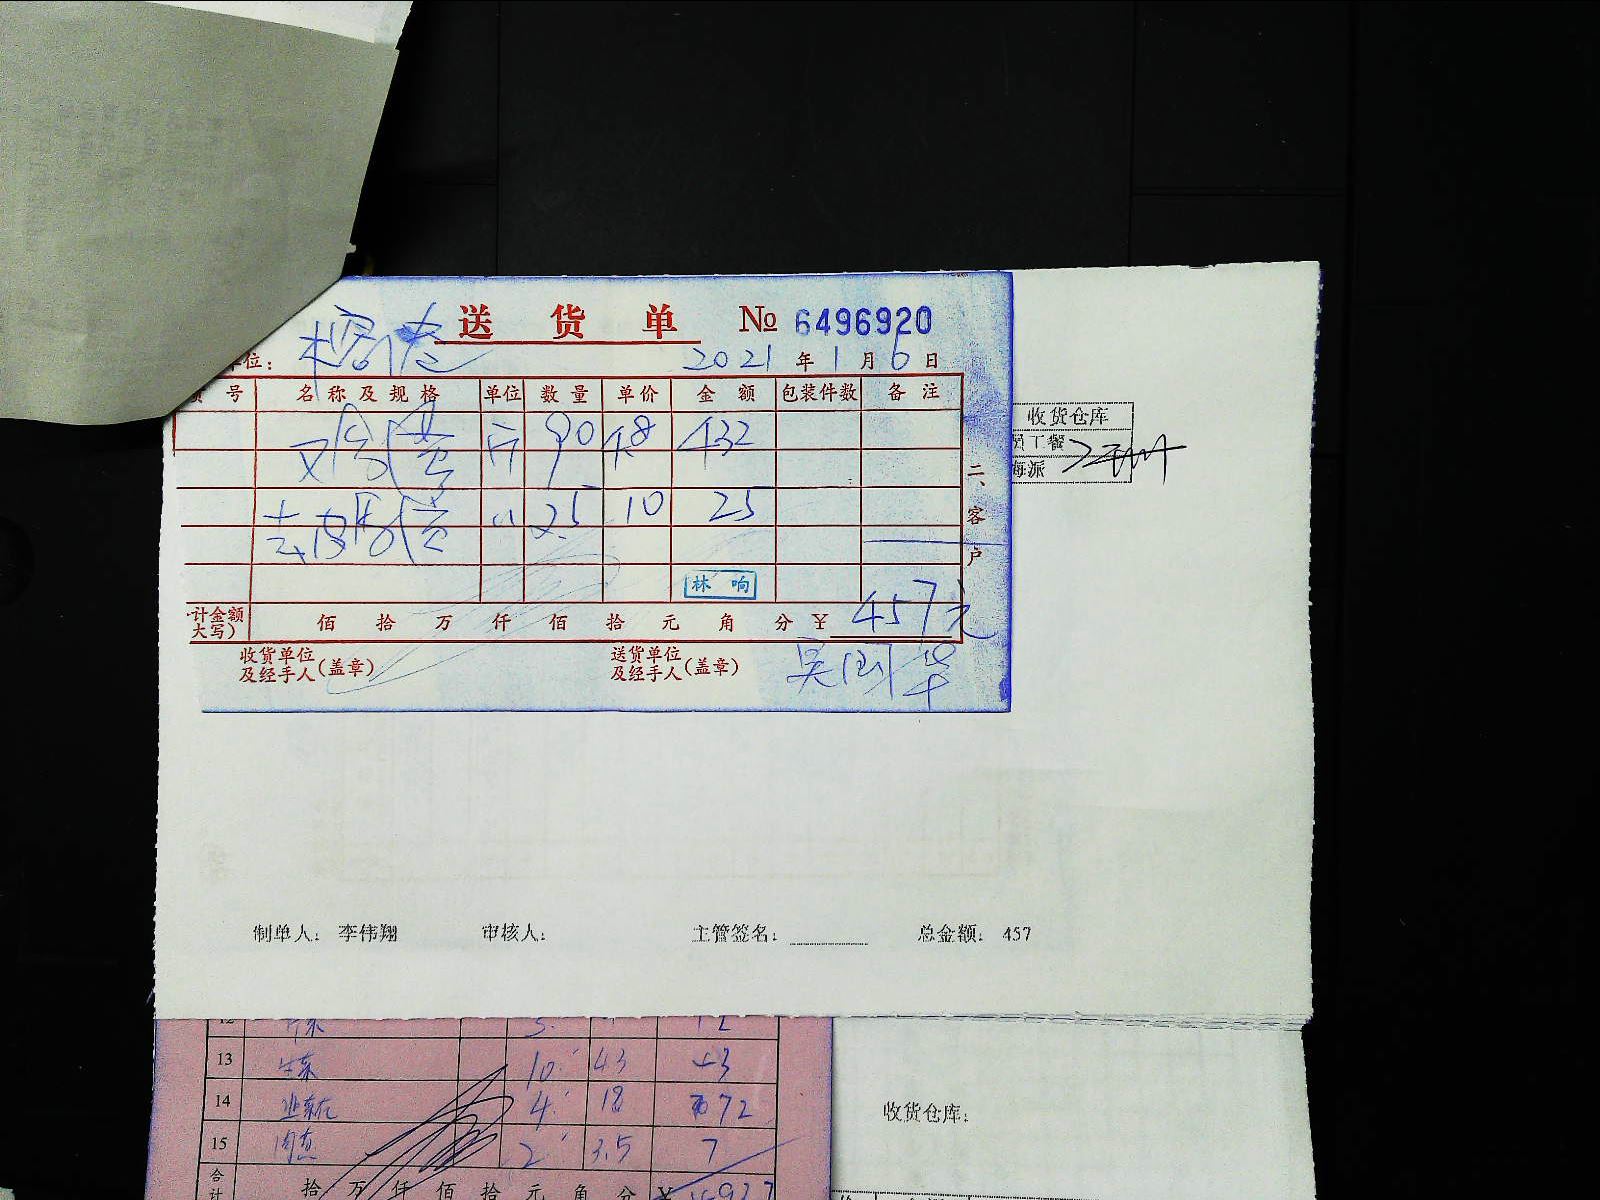 送货单 № 6496920
位： 2021年1月6日
号 名称及规格 单位 数量 单价 金额 包装件数 备注
收货仓库
员工餐
海派
蛋 斤 90 4.8 432
去皮 蛋 〃 2.5 10 25
二、客户
林响
计金额
大写） 佰 拾 万 仟 佰 拾 元 角 分 ¥ 457元
收货单位
及经手人（盖章）
送货单位
及经手人（盖章） 吴国华
制单人： 李伟翔 审核人： 主管签名： 总金额： 457
12
13 10 43
14 4 18 72
15 2 3.5 7
收货仓库：
合计 拾 万 仟 佰 拾 元 角 分 ¥